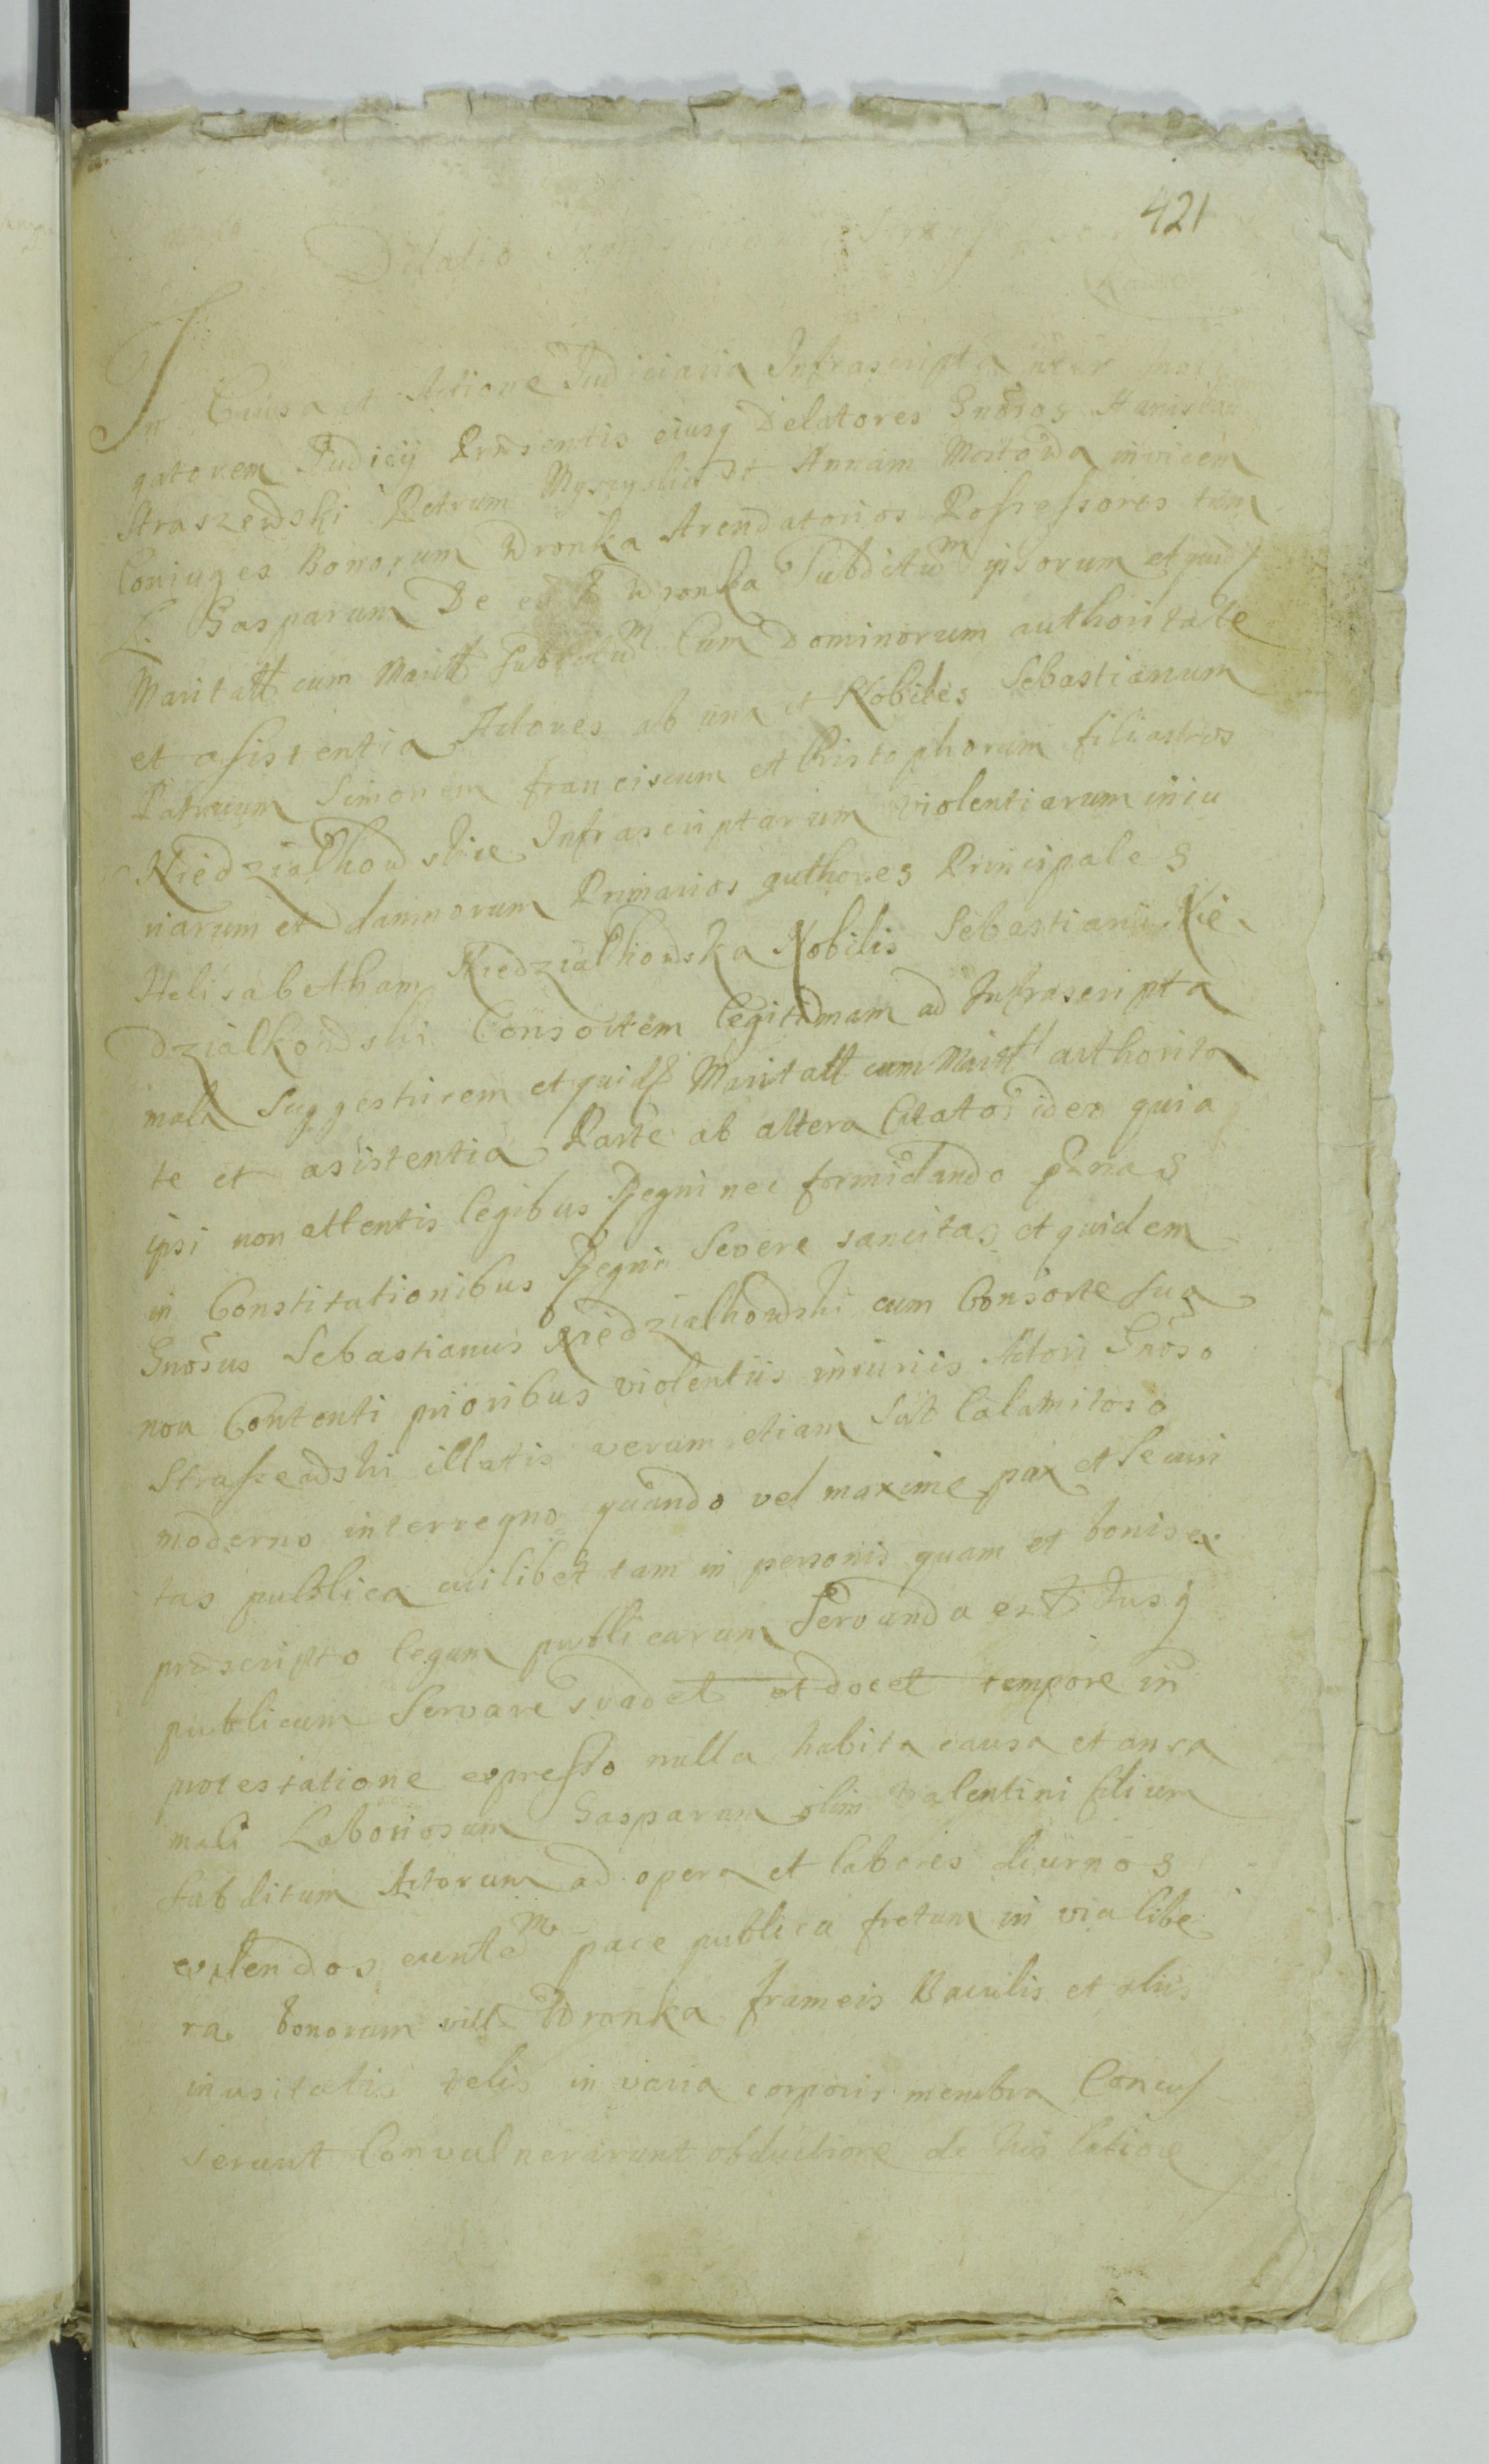 421
Delatio
In Causa et Actione Judiciaria Infrascripta inter
gatorem Judicij Præsentis eiusq Delatores Gnosos Stanislaum
Straszewski Petrum Myszyslie et Annam Mostowa invicem
Coniuges Bonorum Wronka Arendatorios Possessores tum
L. Gasparum De ead Wronka Subditum ipsorum et quid
Maritatt cum Maritt Subditum Cum Dominorum authoritate
et assistentia Actores ab una et Nobiles Sebastianum
Patruum Simonem franciscum et Christophorum filiastros
Niedzialkowskie Infrascriptarum violentiarum iniu
riarum et damnorum Primarios authores Principales
Helisabetham Niedzialkowska Nobilis Sebastiani Nie
dzialkowski Consortem legitimam ad Infrascripta
mala Suggestricem et quidf Maritatt cum Maritt authorita
te et asistentia Parte ab altera Citatos ideo quia
ipsi non attentis legibus Regni nec formidando pænas
in Constitutionibus Regni Severe sancitas et quidem
Gnosus Sebastianus Niedzialkowski cum Consorte sua
non Contenti prioribus violentiis iniuriis Actori Gnoso
Straszewski illatis verum etiam Sub Calamitoso
moderno interregno quando vel maxime pax et Securi
tas publica cuilibet tam in personis quam et bonis ex
præscripto legum publicarum Servanda est Jusq
publicum Servare svadet et docet tempore in
protestatione expresso nulla habita causa et ansa
mali Laboriosum Gasparum olim Valentini filium
subditum Actorum ad opera et labores diurnos
explendos euntem pace publica fretum in via libe
ra bonorum vill Wronka frameis Baculis et aliis
inusitatis telis in varia corporis membra Concus
serunt Convulnerarunt obductione de his latiore